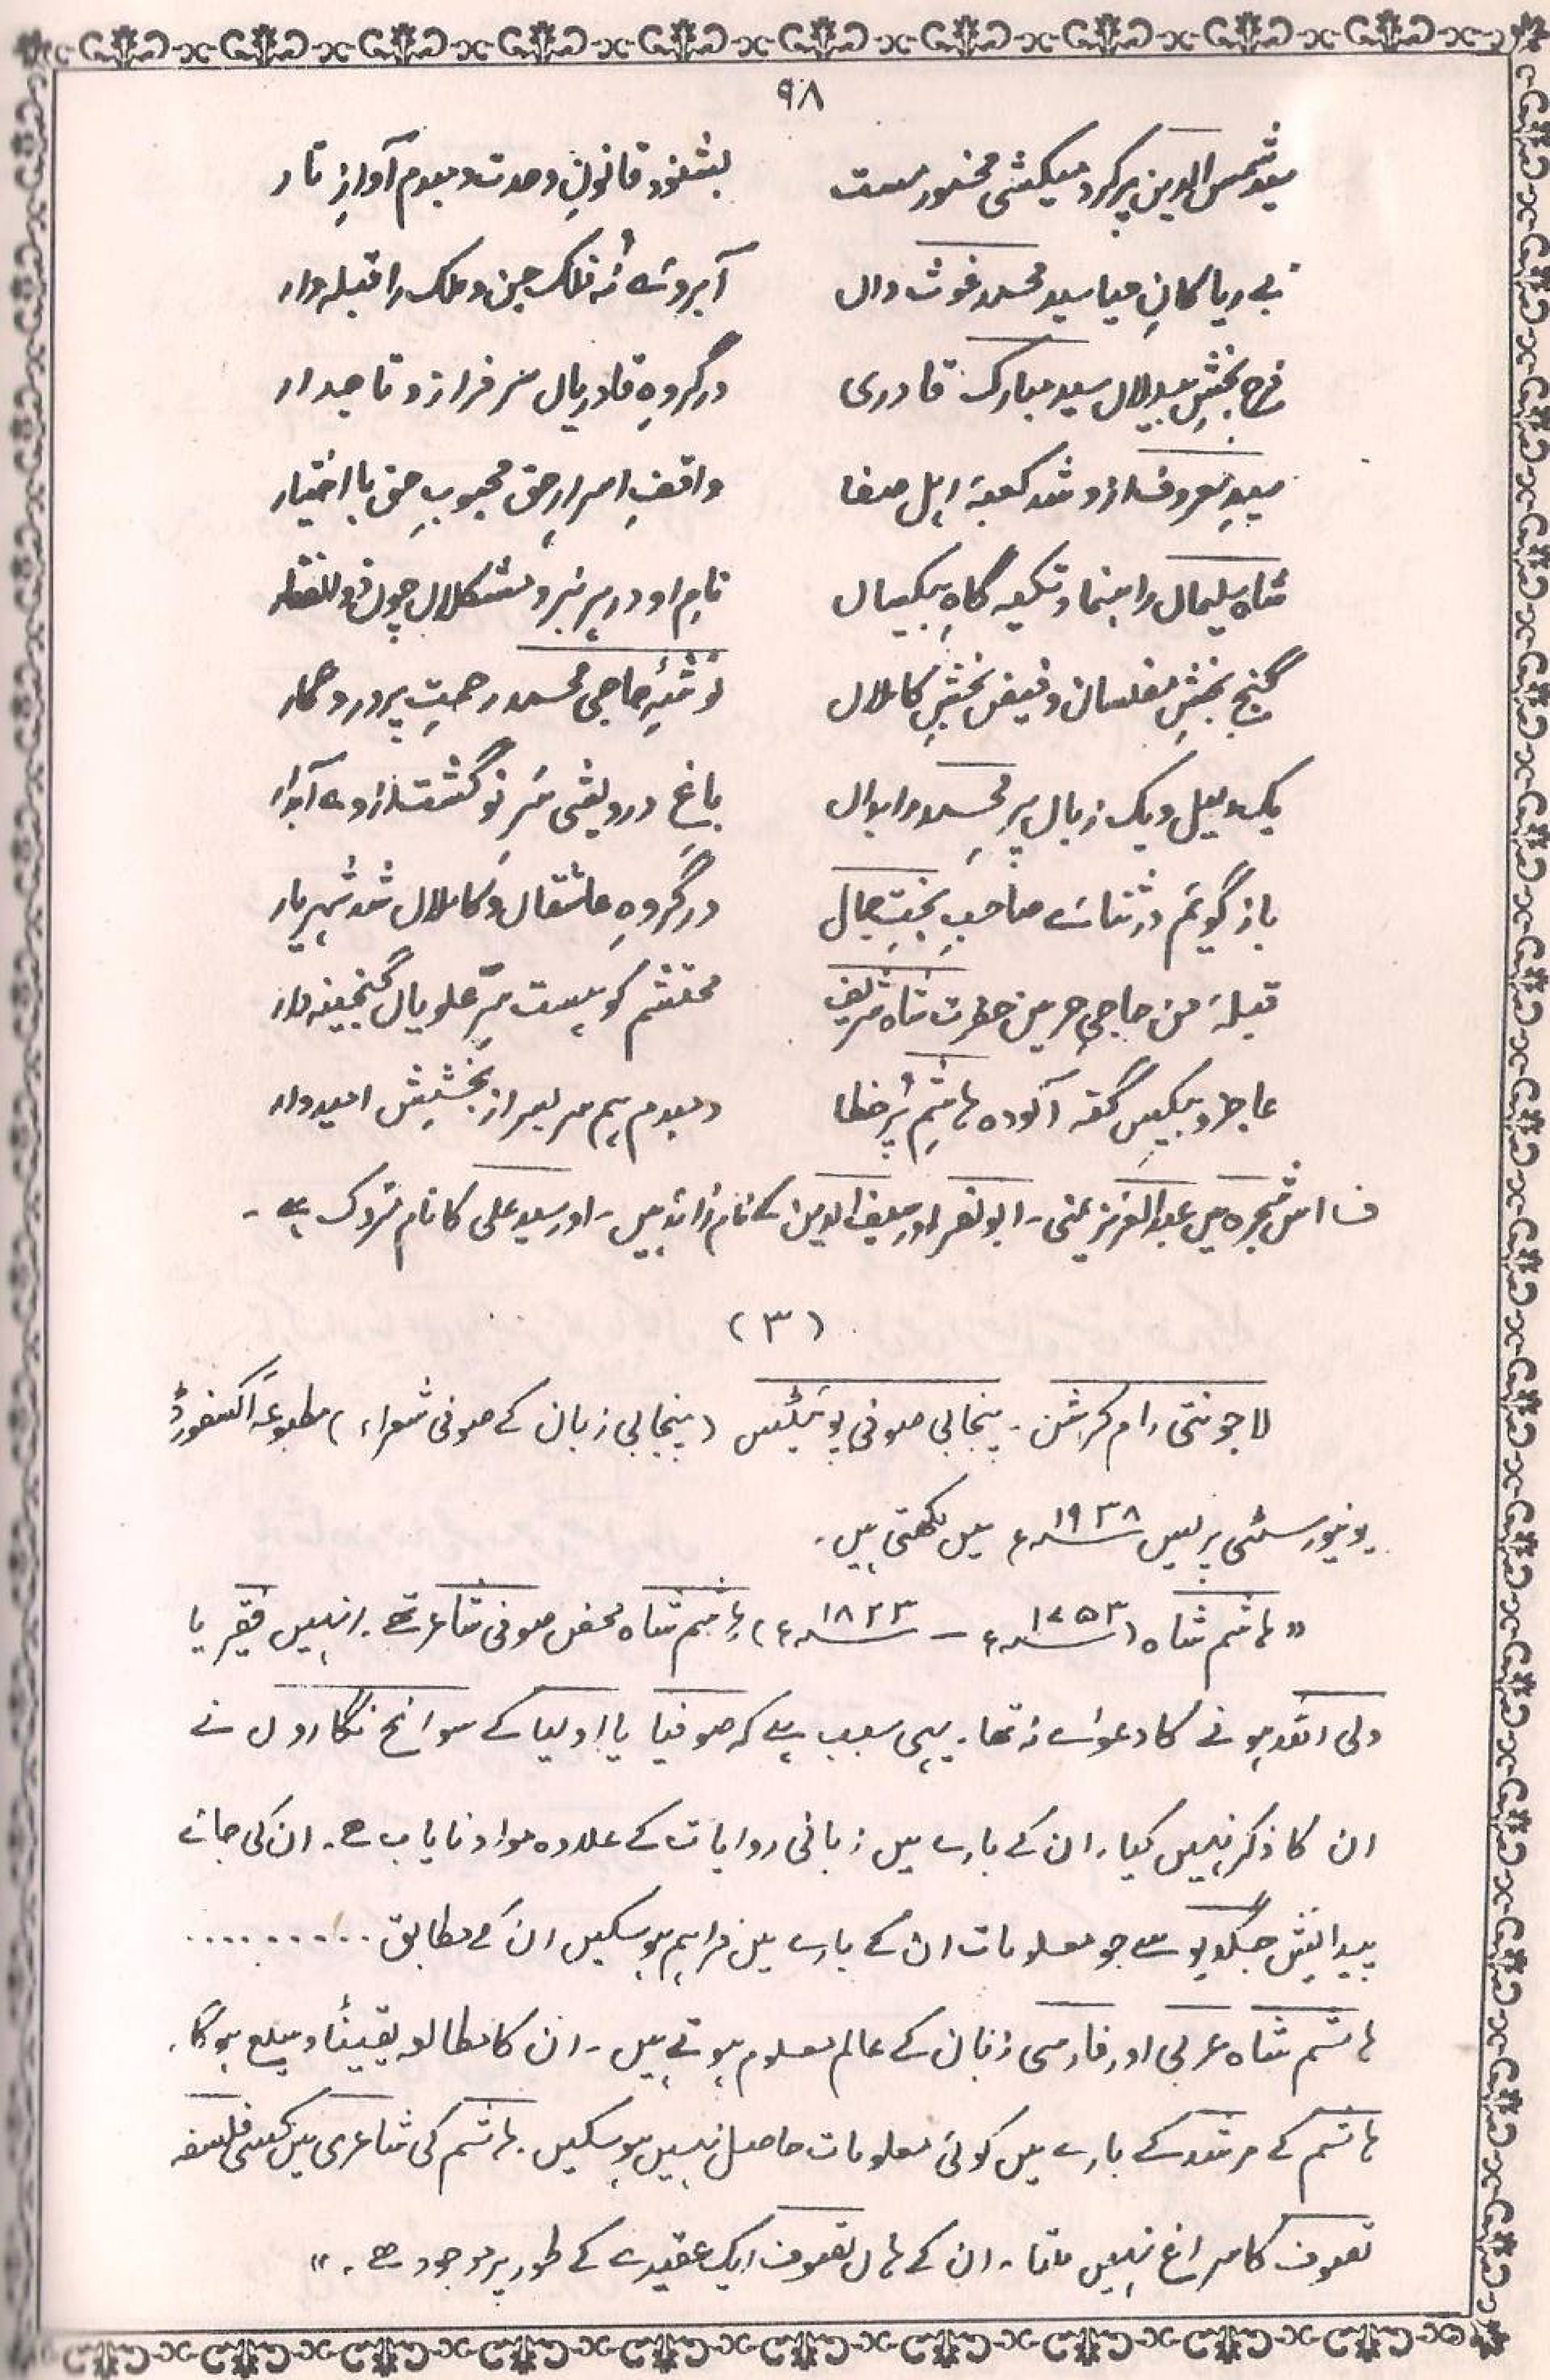 ۹۸
سید شمس الدین پر کرد میکشی مخمور مست    بشنود قانونِ وحدت دمبدم آوازِ تار
بے ریا کانِ حیا سید محمد غوث دان    آبروئے نُہ فلک جن و ملک را قبلہ دار
فرح بخشِ بیدلاں سید مبارک قادری    در گروہِ قادریاں سرفراز و تاجدار
سیدِ معروف ازو شد کعبۂ اہل صفا    واقفِ اسرارِ حق محبوبِ حق با اختیار
شاہ سلیماں راہنما و تکیہ گاہِ بیکساں    نامِ او در ہر نبرد مشکلاں چوں ذوالفقار
گنج بخشِ مفلسان و فیض بخشِ کاملاں    نوشۂ حاجی محمد رحمتِ پروردگار
یک دلیل و یک زباں پیر محمد را بداں    باغِ درویشی سرِ نو گشتہ از وے آبدار
باز گویم در ثنائے صاحبِ بختِ جمال    در گروہِ عاشقاں و کاملاں شد شہریار
قبلۂ من حاجیِ حرمین حضرت شاہ شریف    محتشم کو ہست سِرّ علویاں گنجینہ دار
عاجز و بیکس گنہ آلودہ ہاشم پُر خطا    دمبدم ہم سر بسر از بخشِشش امیدوار
ف اس شجرہ میں عبد العزیز یمنی۔ ابو نصر اور سیف الدین کے نام زائد ہیں۔ اور سید علی کا نام متروک ہے۔
(۳)
لاجونتی رام کرشن۔ پنجابی صوفی پوئیٹس (پنجابی زبان کے صوفی شعراء) مطبوعہ آکسفورڈ
یونیورسٹی پریس ۱۹۳۸ء میں لکھتی ہیں۔
"ہاشم شاہ (۱۷۵۳ء — ۱۸۲۳ء) ہاشم شاہ محض صوفی شاعر تھے۔ انہیں فقیر یا
ولی اللہ ہونے کا دعوائے نہ تھا۔ یہی سبب ہے کہ صوفیا یا اولیا کے سوانح نگاروں نے
ان کا ذکر نہیں کیا۔ ان کے بارے میں زبانی روایات کے علاوہ مواد نایاب ہے۔ ان کی جائے
پیدائش جگدیو سے جو معلومات ان کے بارے میں فراہم ہو سکیں ان کے مطابق ..........
ہاشم شاہ عربی اور فارسی زبان کے عالم معلوم ہوتے ہیں۔ ان کا مطالعہ یقیناً وسیع ہوگا۔
ہاشم کے مرشد کے بارے میں کوئی معلومات حاصل نہیں ہو سکیں۔ ہاشم کی شاعری میں کسی فلسفہ
تصوف کا سراغ نہیں ملتا۔ ان کے ہاں تصوف ایک عقیدے کے طور پر موجود ہے۔"